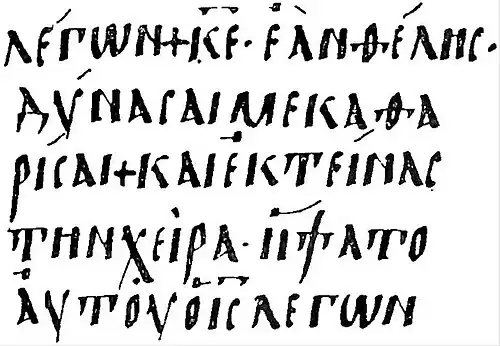 λέγων + κ̅ε̅ · ἐὰν θέλης ·
δύνασαι με καθα
ρίσαι + καὶ ἐκτείνας
τὴν χεῖρα · ἥψατο
ἀυτοῦ ὁ ι̅ς̅ λέγων